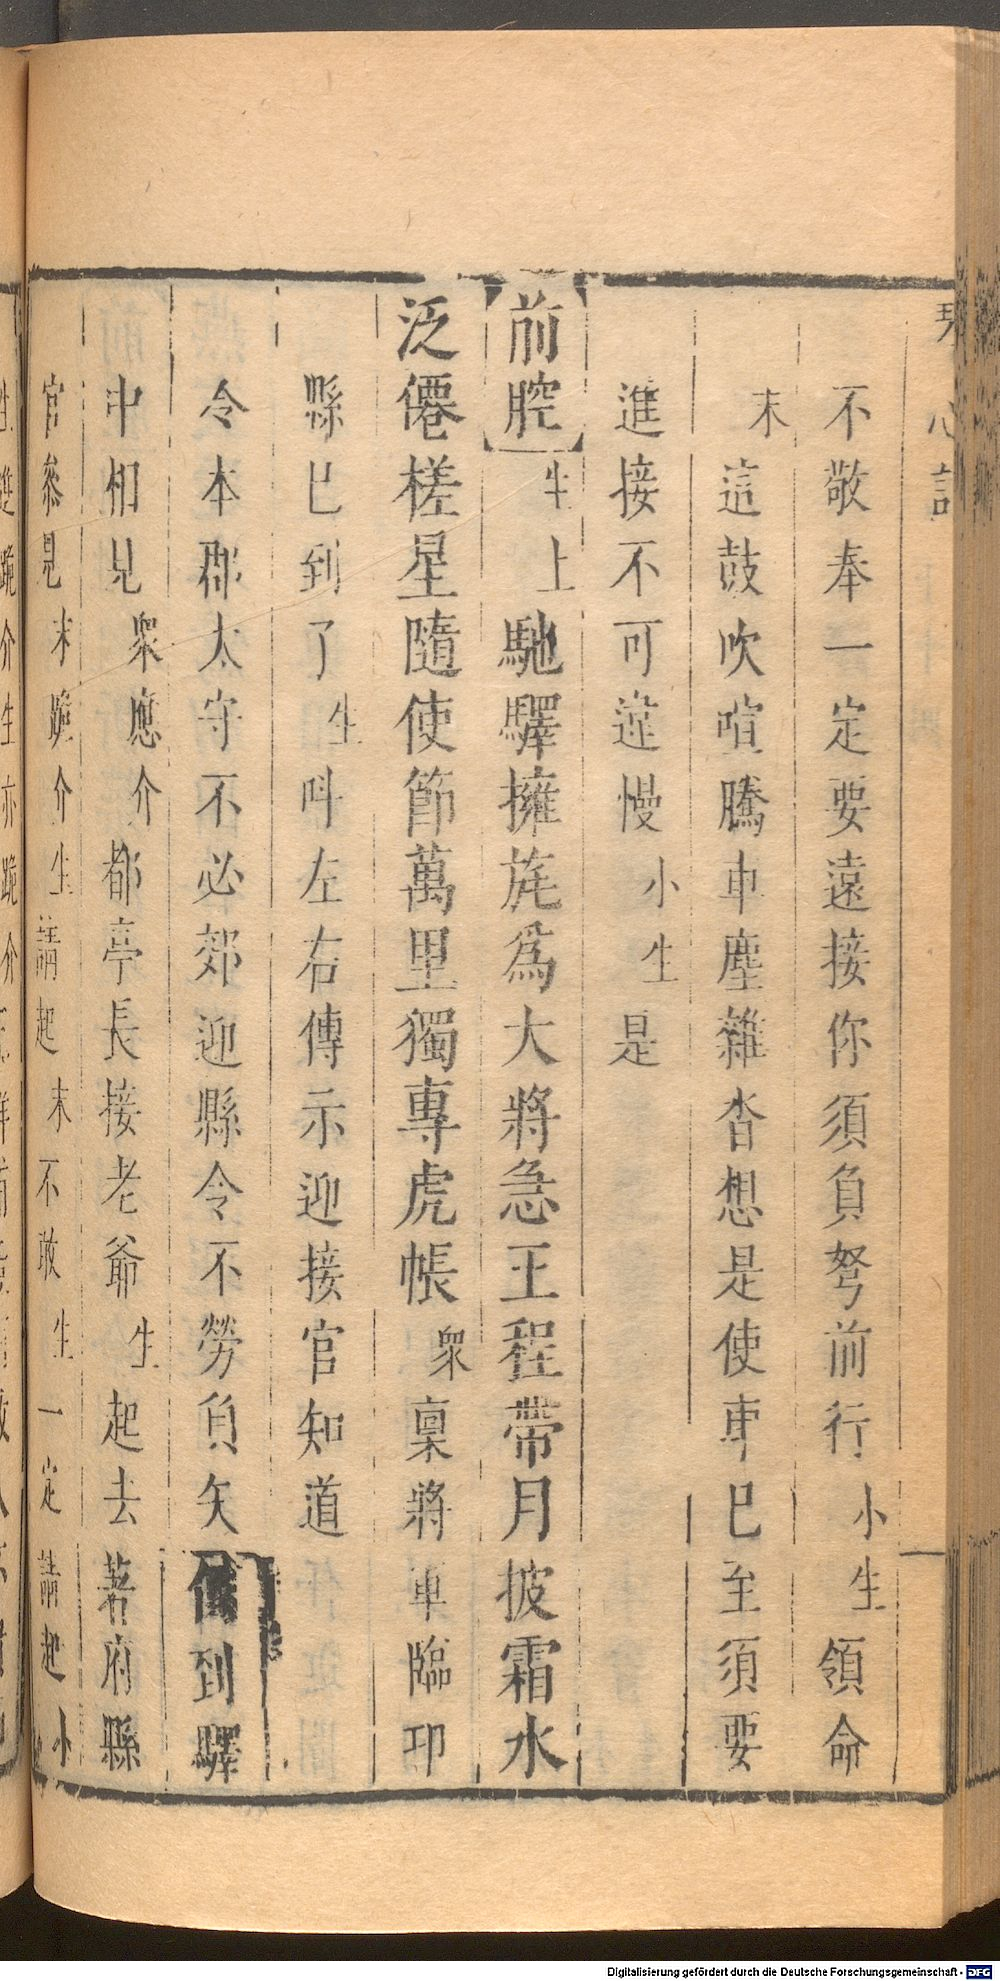 琴心記
不敬奉一定要遠接你須負弩前行小生領命
末這鼓吹喧騰車塵雜沓想是使車已至須要
進接不可違慢小生是
【前腔】生上馳驛擁旄為大將急王程帶月披霜水
泛僊槎星隨使節萬里獨專虎帳眾稟將軍臨邛
縣已到了生叫左右傳示迎接官知道
令本郡太守不必郊迎縣令不勞負矢俱到驛
中相見眾應介都亭長接老爺生起去著府縣
官叅見末跪介生請起末不敢生一定請起小
Digitalisierung gefördert durch die Deutsche Forschungsgemeinschaft - DFG